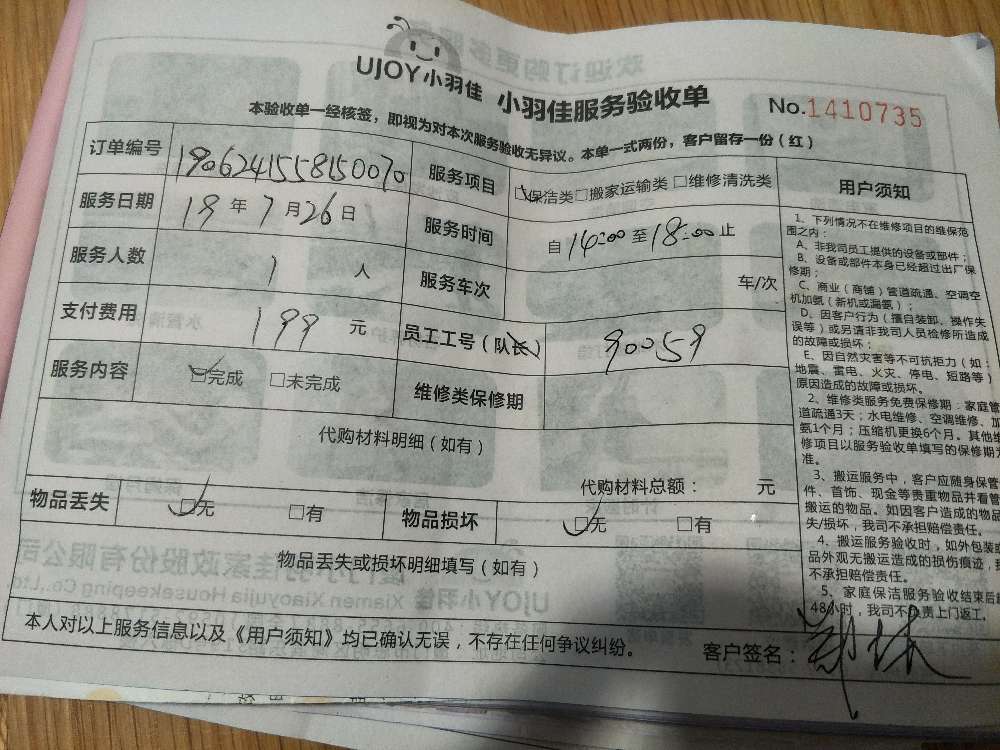 UJOY小羽佳 小羽佳服务验收单 No.1410735
本验收单一经核签，即视为对本次服务验收无异议。本单一式两份，客户留存一份（红）
订单编号 1906241558150070 服务项目 保洁类 搬家运输类 维修清洗类
服务日期 19年7月26日 服务时间 自14:00至18:00止
服务人数 1人 服务车次 车/次
支付费用 199元 员工工号（队长） 90059
服务内容 完成 未完成 维修类保修期
代购材料明细（如有）
代购材料总额： 元
物品丢失 无 有 物品损坏 无 有
物品丢失或损坏明细填写（如有）
本人对以上服务信息以及《用户须知》均已确认无误，不存在任何争议纠纷。
客户签名：
用户须知
1、下列情况不在维修项目的维保范
围之内：
A、非我司员工提供的设备或部件；
B、设备或部件本身已经超过出厂保
修期；
C、商业（商铺）管道疏通、空调空
机加氨（新机或漏氨）；
D、因客户行为（擅自装卸、操作失
误等）或另请非我司人员检修所造成
的故障或损坏；
E、因自然灾害等不可抗拒力（如：
地震、雷电、火灾、停电、短路等）
原因造成的故障或损坏。
2、维修类服务免费保修期：家庭管
道疏通3天；水电维修、空调维修、加
氨1个月；压缩机更换6个月。其他维
修项目以服务验收单填写的保修期为
准。
3、搬运服务中，客户应随身保管
件、首饰、现金等贵重物品并看管
搬运的物品。如因客户造成的物品
失/损坏，我司不承担赔偿责任。
4、搬运服务验收时，如外包装或
品外观无搬运造成的损伤痕迹，我
不承担赔偿责任。
5、家庭保洁服务验收结束后超
48小时，我司不负责上门返工。